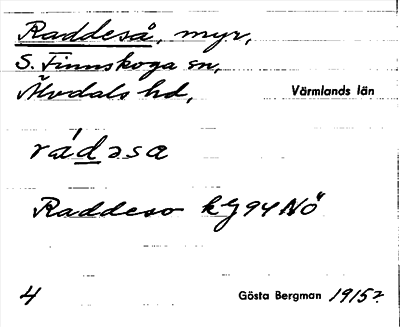 Raddeså, myr,
S. Finnskoga sn,
Älvdals hd,
Värmlands län
rádəsa
Raddeso kg 94 NÖ
4
Gösta Bergman 1915?